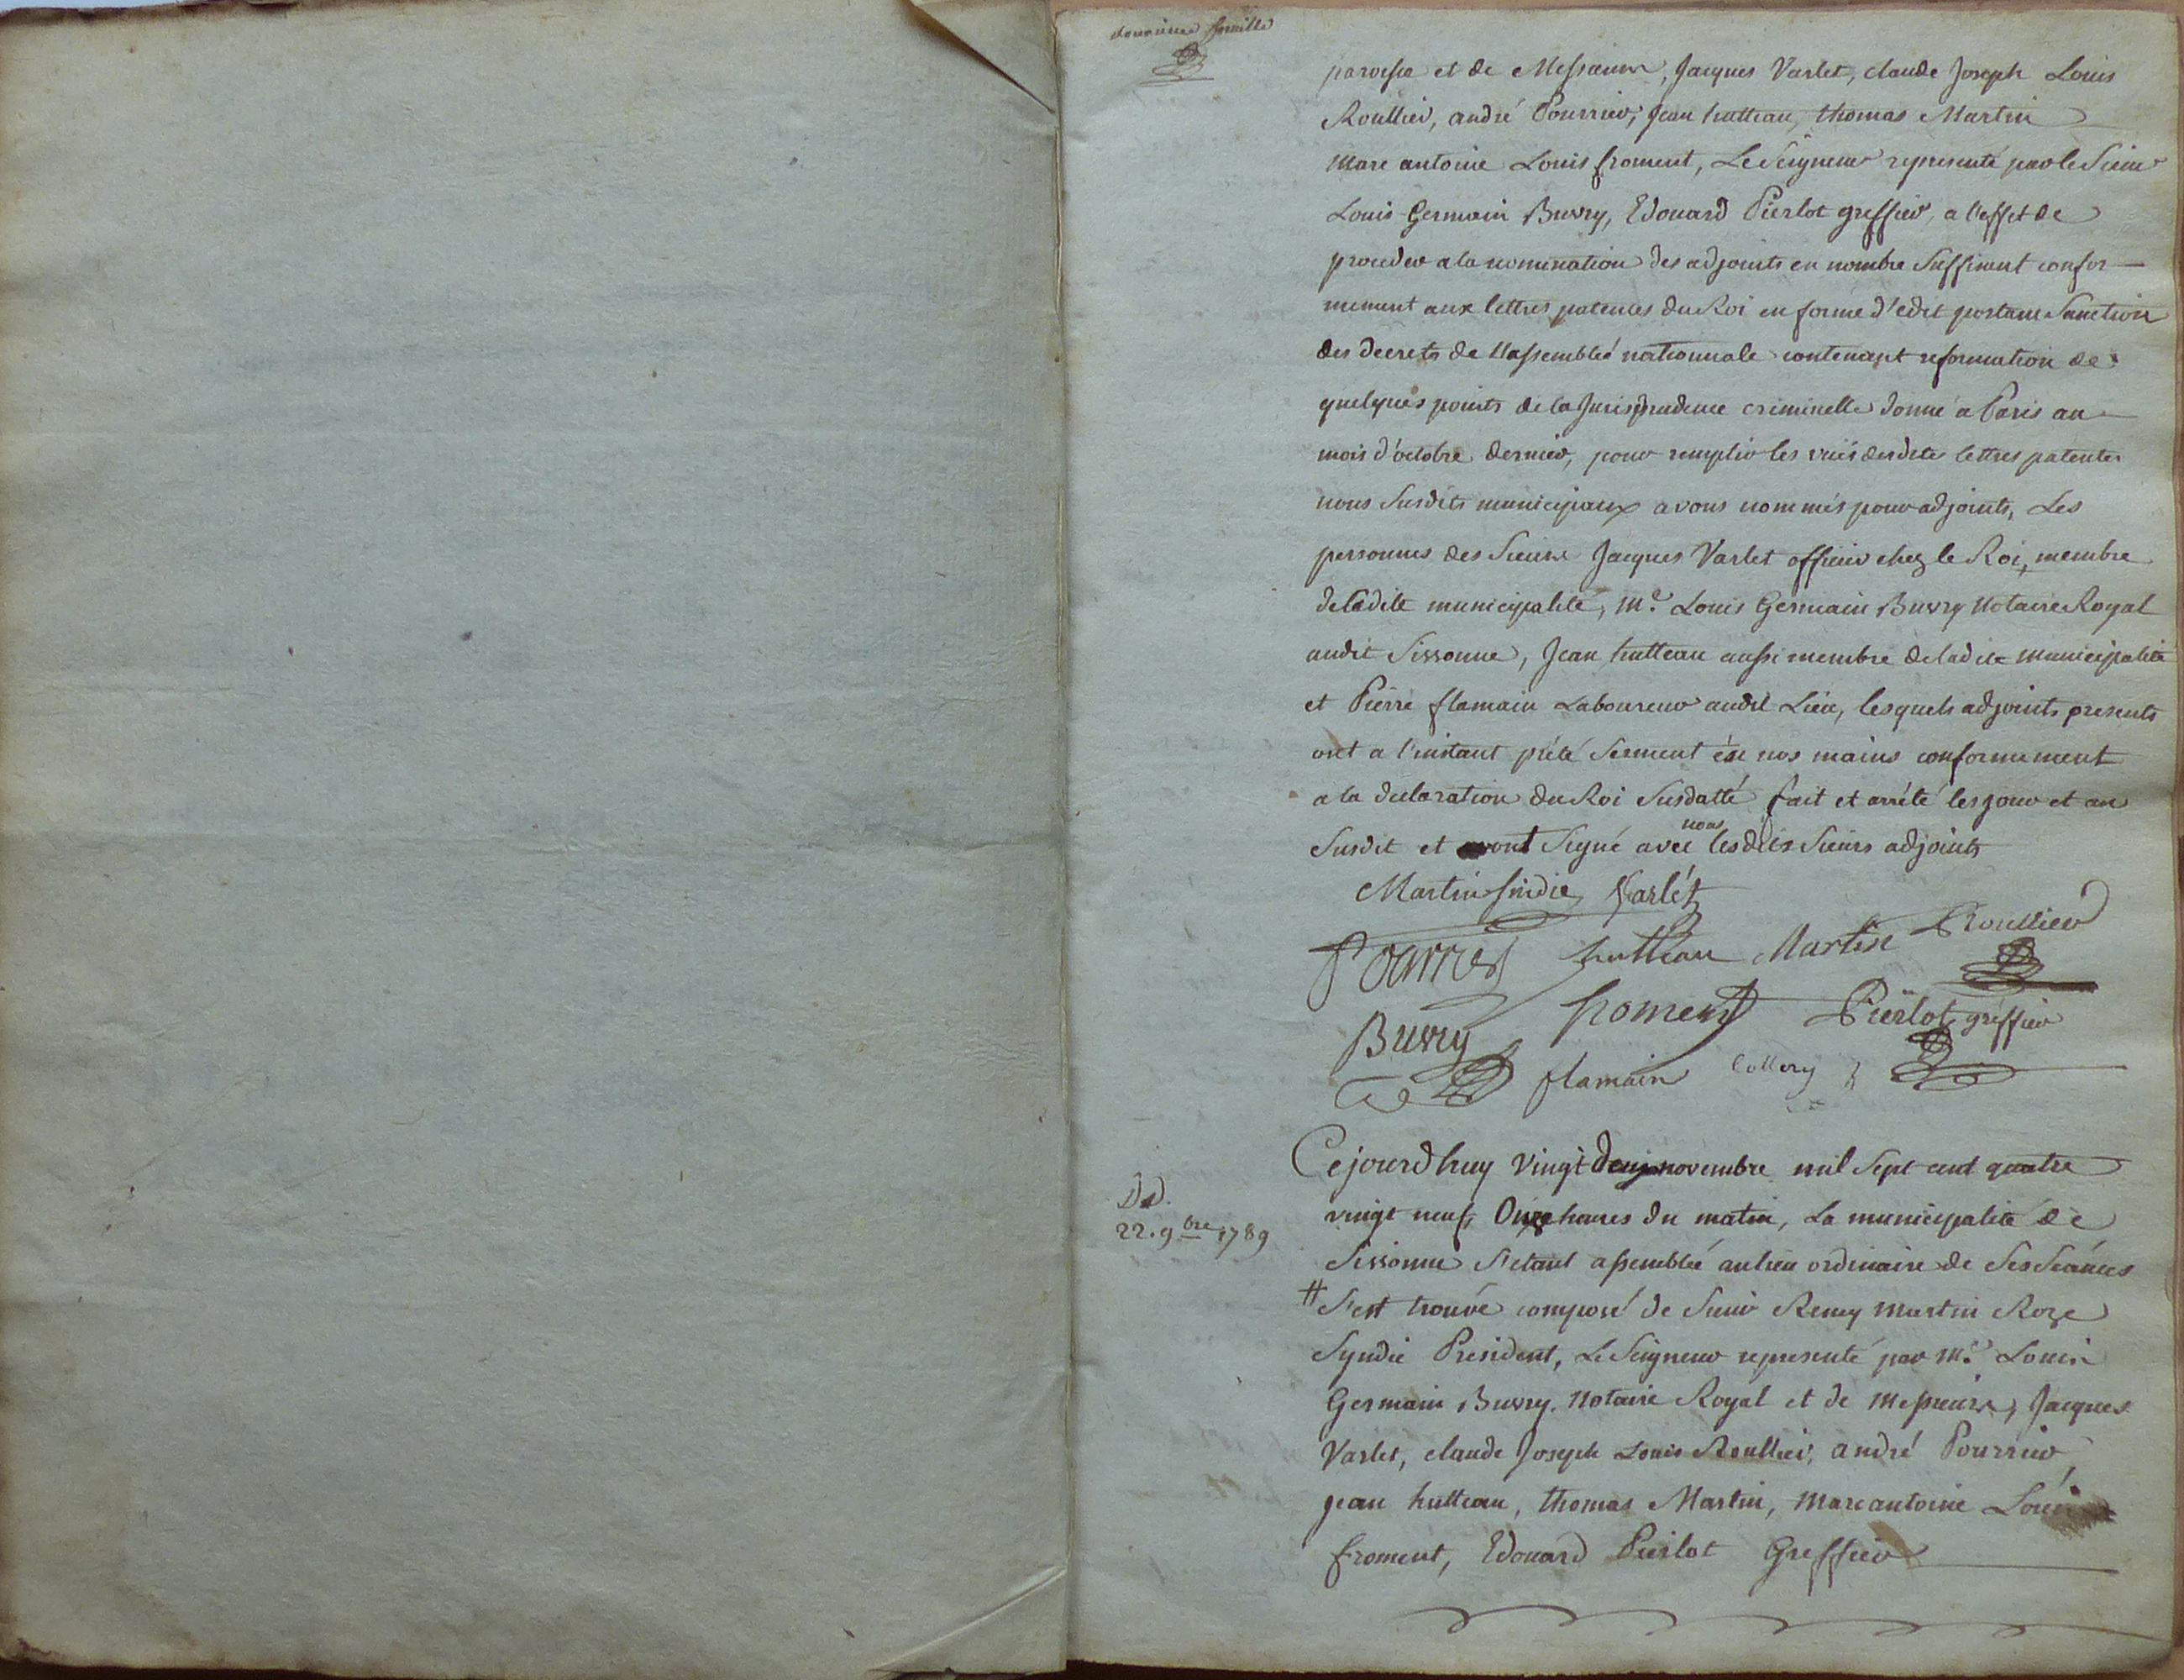 douzieme feuille
paroisse et de Messieurs, Jacques Varlet, claude Joseph Louis
Roullier, andré Pourrier, Jean hutteau, thomas Martin
Marc antoine Louis froment, Le Seigneur representé par le Sieur
Louis Germain Buvry, Edouard Pierlot greffier, a l'effet de
proceder a la nomination des adjoints en nombre Suffisant confor-
mement aux lettres patentes du Roi en forme d'edit portant Sanction
des decrets de l'assemblée nationnale contenant reformation de
quelques points de la Jurisprudence criminelle donné a Paris au
mois d'octobre dernier, pour remplir les vües desdites lettres patentes
nous Susdits municipaux avons nommés pour adjoints, Les
personnes des Sieurs Jacques Varlet officier chez le Roi, membre
de ladite municipalité, Me. Louis Germain Buvry Notaire Royal
audit Sissonne, Jean hutteau aussi membre de ladite Municipalité
et Pierre flamain Laboureur audit Lieu, lesquels adjoints presents
ont a l'instant prété Serment en nos mains conformement
a la declaration du Roi Susdatté fait et arrété les jour et an
Susdit et ont Signé avec nous lesdits Sieurs adjoints
Martin sindic Varlét
Pourrier hutteau Martin Roullier
Buvry froment Pierlot greffier
flamain Collery
Cejourdhuy Vingt deux novembre mil Sept cent quatre
Dud.
22. 9bre 1789
vingt neuf, Onze heures du matin, La municipalité de
Sissonne S'etant assemblée au lieu ordinaire de Ses Seánces
# S'est trouvée composé de Sieur Remy Martin Roze
Syndic President, Le Seigneur representé par Me. Louis
Germain Buvry Notaire Royal et de Messieurs, Jacques
Varlet, claude Joseph Louis Roullier, andré Pourrier
jean hutteau, thomas Martin, Marc antoine Louis
froment, Edouard Pierlot Greffier